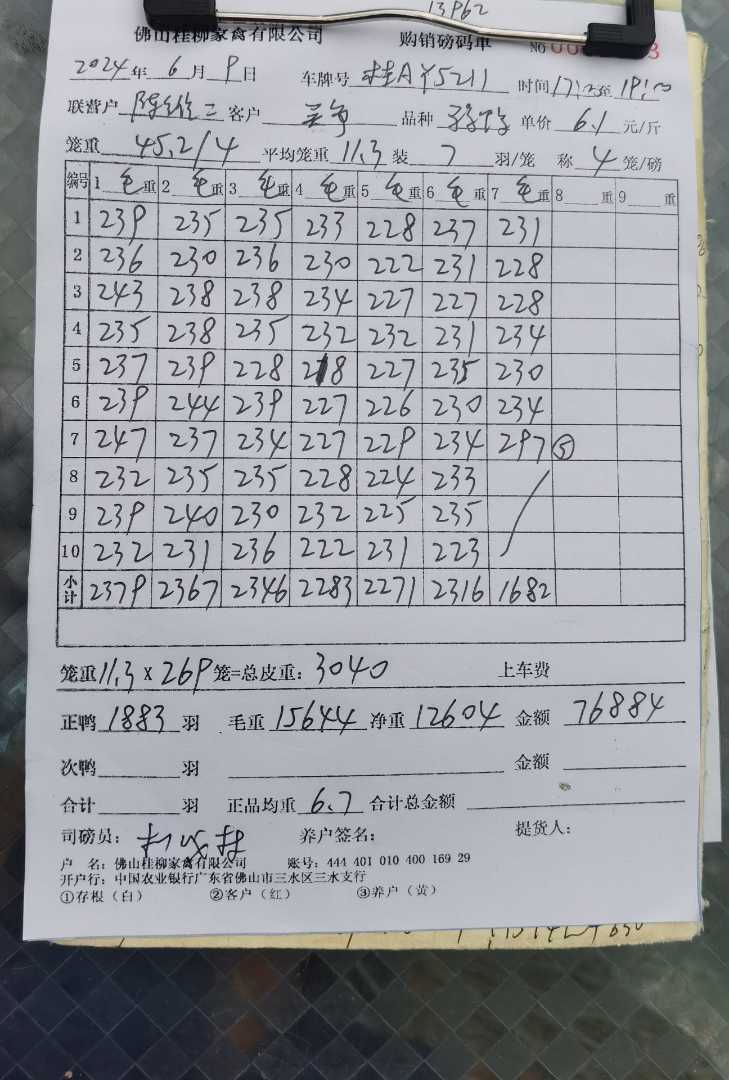 13962
佛山桂柳家禽有限公司 购销磅码单 NO
2024年 6月 9日 车牌号 桂AY5211 时间17: 至 19:
联营户 陈 三 客户 吴争 品种 单价 6.1 元/斤
笼重 45.2/4 平均笼重 11.3 装 7 羽/笼 称 4 笼/磅
编号 1 毛重 2 毛重 3 毛重 4 毛重 5 毛重 6 毛重 7 毛重 8 重 9 重
1 239 235 235 233 228 237 231
2 236 230 236 230 222 231 228
3 243 238 238 234 227 227 228
4 235 238 235 232 232 231 234
5 237 239 228 218 227 235 230
6 239 244 239 227 226 230 234
7 247 237 234 227 229 234 297 ⑤
8 232 235 235 228 224 233
9 239 240 230 232 225 235
10 232 231 236 222 231 223
小计 2379 2367 2346 2283 2271 2316 1682
笼重 11.3 X 269 笼=总皮重: 3040 上车费
正鸭 1883 羽 毛重 15644 净重 12604 金额 76884
次鸭 羽 金额
合计 羽 正品均重 6.7 合计总金额
司磅员: 养户签名: 提货人:
户 名: 佛山桂柳家禽有限公司 账号: 444 401 010 400 169 29
开户行: 中国农业银行广东省佛山市三水区三水支行
①存根（白） ②客户（红） ③养户（黄）